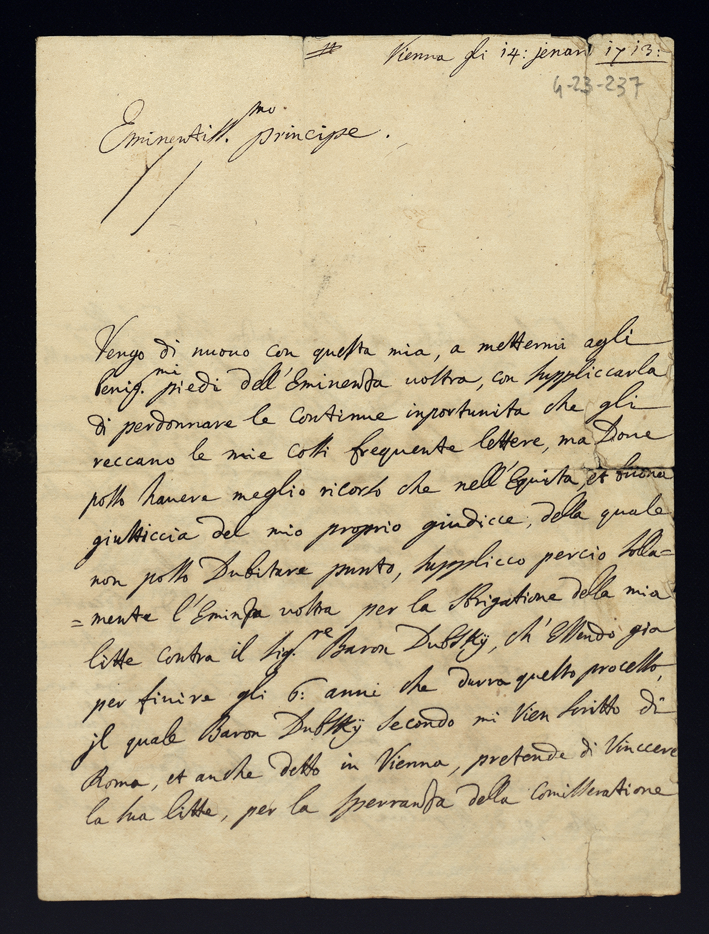 # Vienna gli 14: jenaro 1713:
4-23-237
Eminentiss.mo principe.
Vengo di nuovo con questa mia, a mettermi agli
benig.mi piedi dell'Eminenza vostra, con suppliccarla
di perdonnare le continue inportunita che gli
reccano le mie cossi frequente lettere, ma Dove
posso havere meglio ricorso che nell'Equita, et buona
giusticcia del mio proprio giudicce, della quale
non posso Dubitare punto, supplicco percio solla=
=mente l'Eminza vostra per la sbrigatione della mia
litte contra il sig.re Baron Dubsky, ch'Essendo gia
per finire gli 6: anni che durra questo processo,
jl quale Baron Dubsky secondo mi vien scritto di
Roma, et anche detto in Vienna, pretende di Vinccere
la sua litte, per la sperranza della Comisseratione